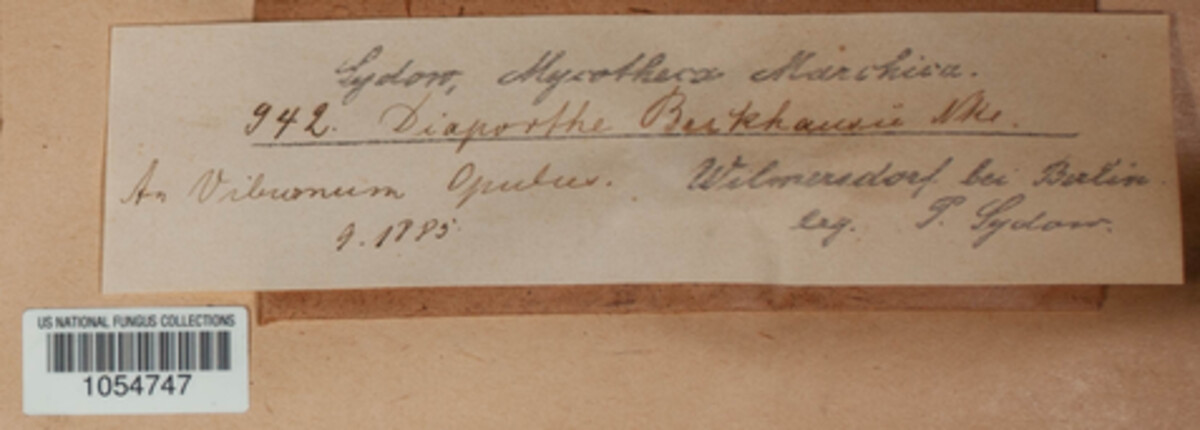 Sydow, Mycotheca Marchica.
942. Diaporthe Berkhausii Nke.
An Viburnum Opulus. Wilmersdorf bei Berlin
9. 1885 leg. P. Sydow.
US NATIONAL FUNGUS COLLECTIONS
1054747